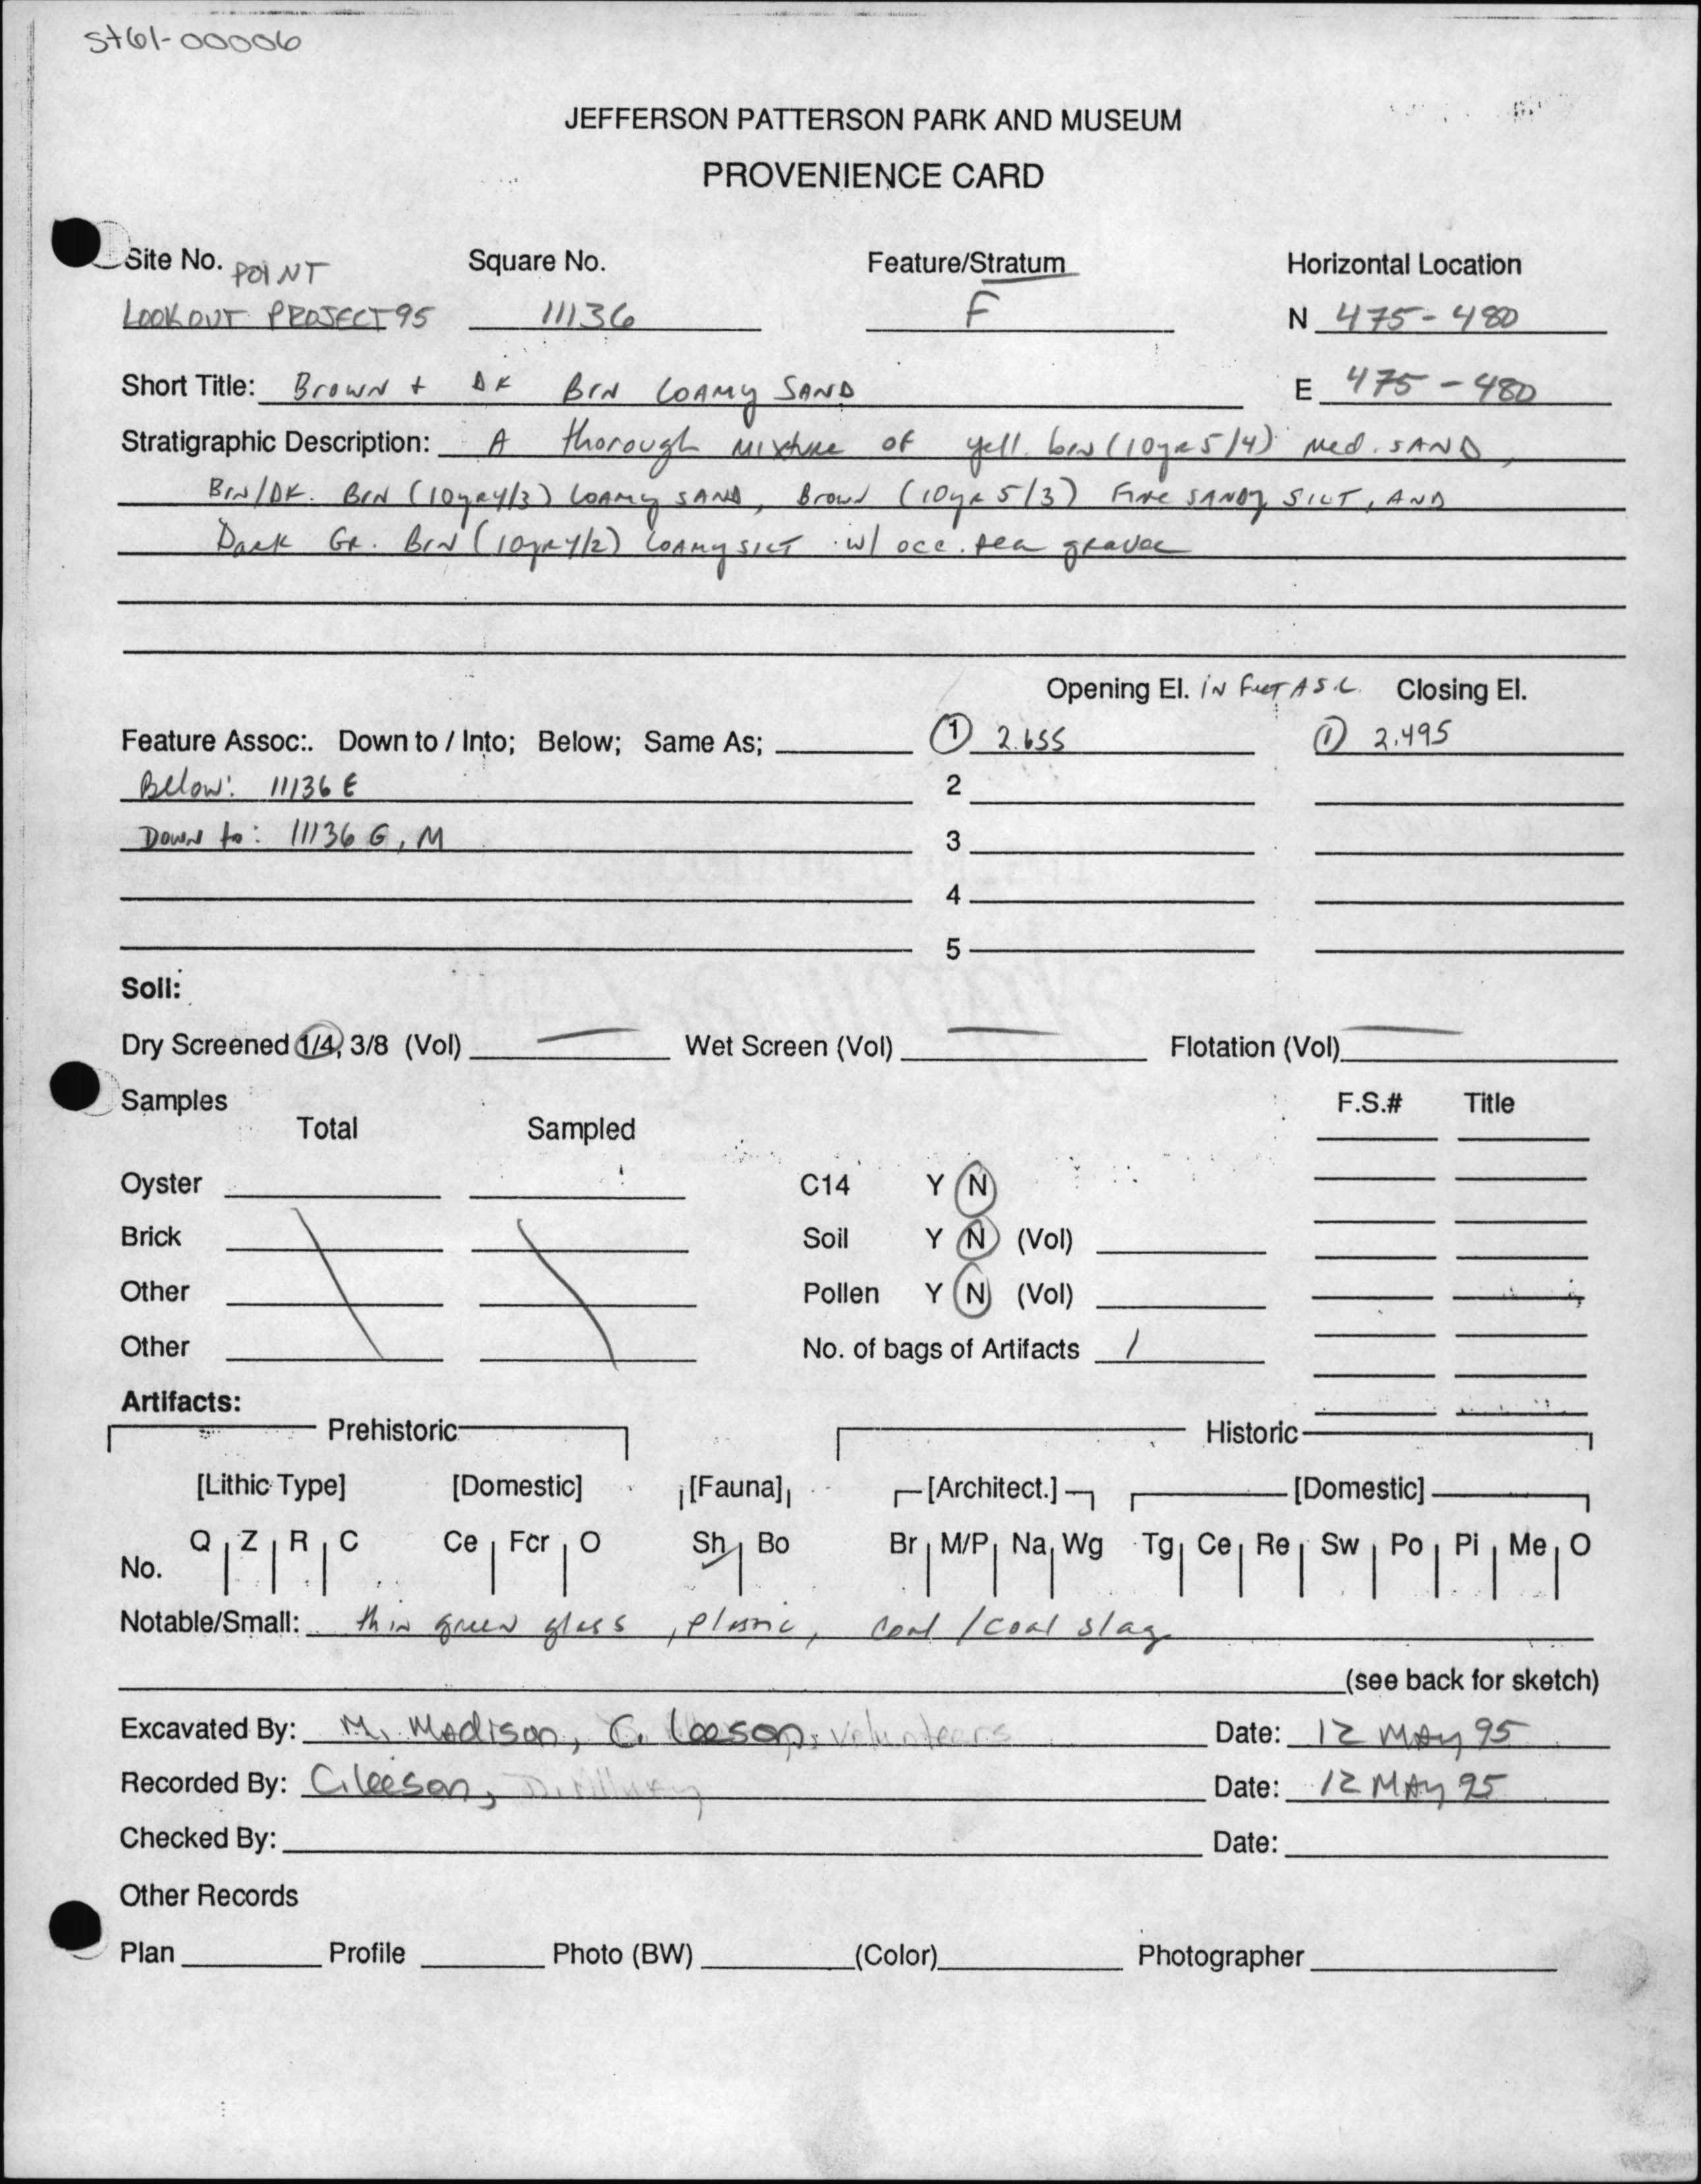 St61-00006
JEFFERSON PATTERSON PARK AND MUSEUM
PROVENIENCE CARD
Site No. POINT Square No. Feature/Stratum Horizontal Location
LOOKOUT PROJECT 95 11136 F N 475-480
Short Title: Brown + DK BRN LOAMY SAND E 475-480
Stratigraphic Description: A thorough mixture of yell. brn (10yR5/4) med. SAND,
BRN/DK. BRN (10yR4/3) LOAMY SAND, Brown (10yR 5/3) Fine SANDY SILT, AND
Dark GR. BRN (10yR4/2) LOAMY SILT w/ occ. pea gravel
Opening El. IN Feet ASL. Closing El.
Feature Assoc:. Down to / Into; Below; Same As; 1 2.655 1 2.495
Below: 11136 E 2
Down to: 11136 G, M 3
4
5
Soil:
Dry Screened 1/4, 3/8 (Vol) Wet Screen (Vol) Flotation (Vol)
Samples F.S.# Title
Total Sampled
Oyster C14 Y N
Brick Soil Y N (Vol)
Other Pollen Y N (Vol)
Other No. of bags of Artifacts 1
Artifacts:
Prehistoric Historic
[Lithic Type] [Domestic] [Fauna] [Architect.] [Domestic]
No. Q Z R C Ce Fcr O Sh Bo Br M/P Na Wg Tg Ce Re Sw Po Pi Me O
Notable/Small: thin green glass, plastic, coal/coal slag
(see back for sketch)
Excavated By: M. Madison, C. Leeson, volunteers Date: 12 MAY 95
Recorded By: C. Leeson, Date: 12 MAY 95
Checked By: Date:
Other Records
Plan Profile Photo (BW) (Color) Photographer